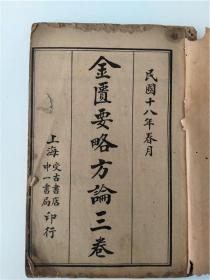 民國十八年春月
金匱要略方論三卷
上海受古書店
中一書局印行